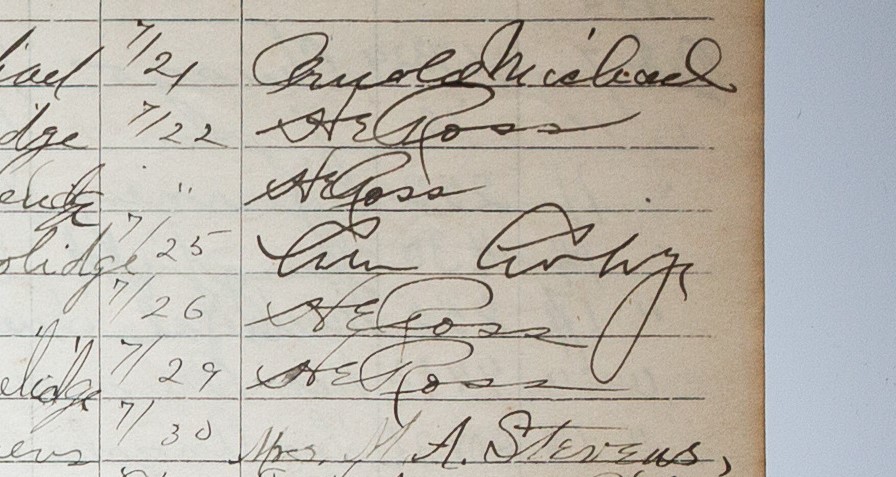 7/21 Arnold Michael
dge 7/22 HE Ross
" HE Ross
olidge 7/25
7/26 HE Ross
olidge 7/29 HE Ross
ens 7/30 Mrs. M. A. Stevens,